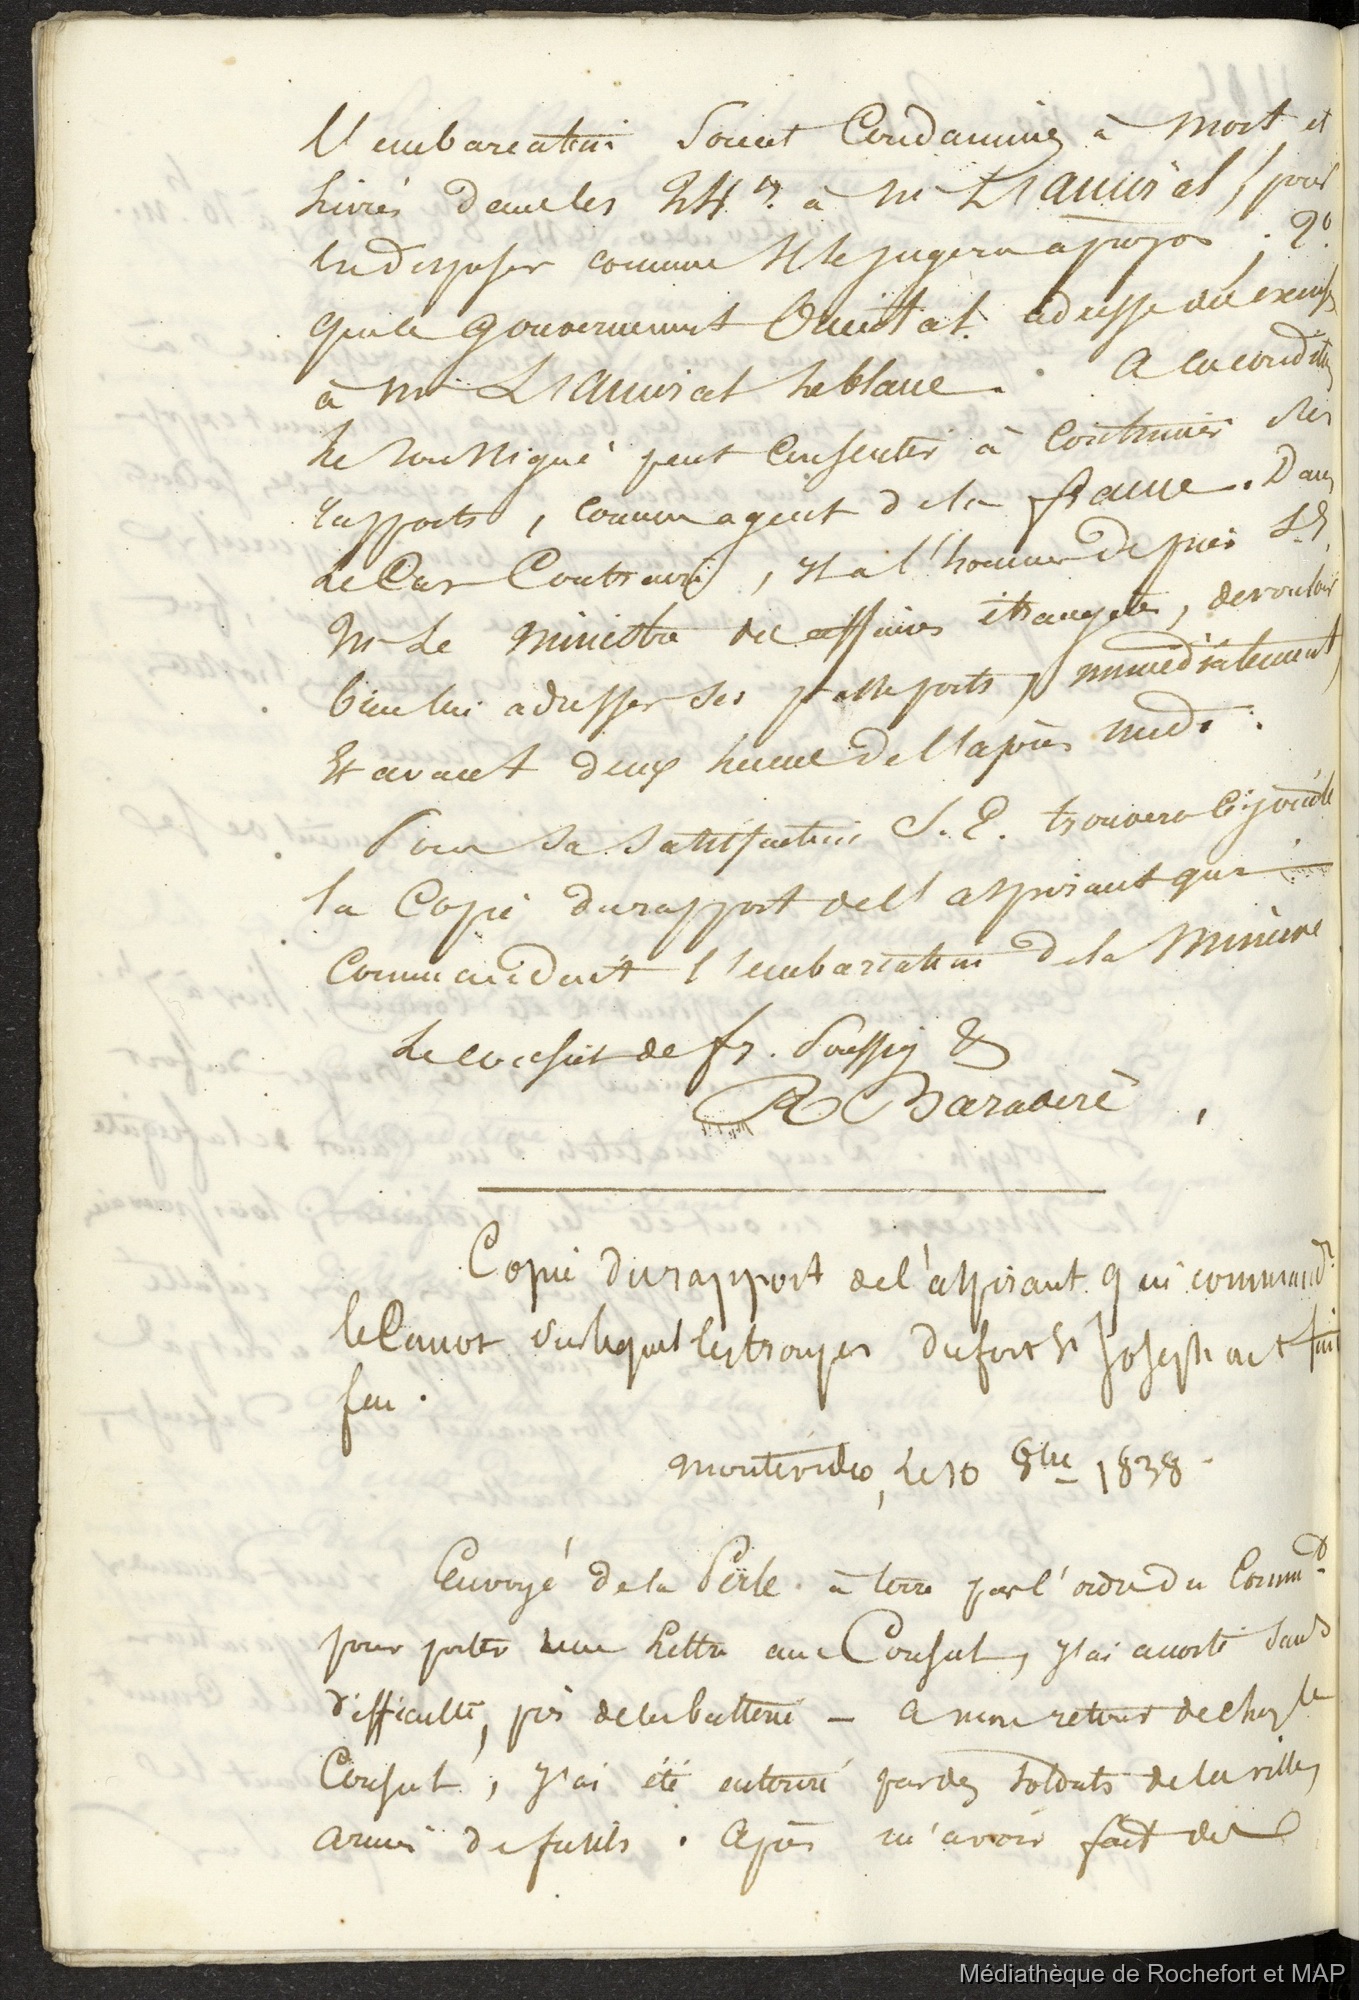 l'embarcation soient Condamnés à mort et
livrés dans les 24 h. à Mr L'amiral, pour
en disposer comme il le jugera à propos. 2°
que le gouvernement Oriental adresse des excuses
à Mr L'amiral Leblanc. A ces conditions
le soussigné peut consentir à continuer des
rapports, comme agent de la france. Dans
Le Cas Contraire, il a l'honneur de prier S.E.
Mr Le Ministre des affaires étrangères, de vouloir
bien lui adresser ses passeports, immédiatement
et avant deux heures de l'après midi.
Pour sa satisfaction S. E. trouvera ci jointe
la Copie du rapport de l'aspirant qui
Commandait l'embarcation de la Minerve
Le consul de fr.
R Baradère
Copie du rapport de l'aspirant qui command.t
le Canot sur lequel les troupes du fort St Joseph ont fait
feu.
Montévidéo, le 10 8bre 1838.
Envoyé de la Perle à terre par l'ordre du Comm.d
pour porter une lettre au Consul, j'ai accosté sans
difficulté, près de la batterie - A mon retour de chez le
Consul, j'ai été entouré par des soldats de la ville,
armés de fusils. Après m'avoir fait des
Médiathèque de Rochefort et MAP